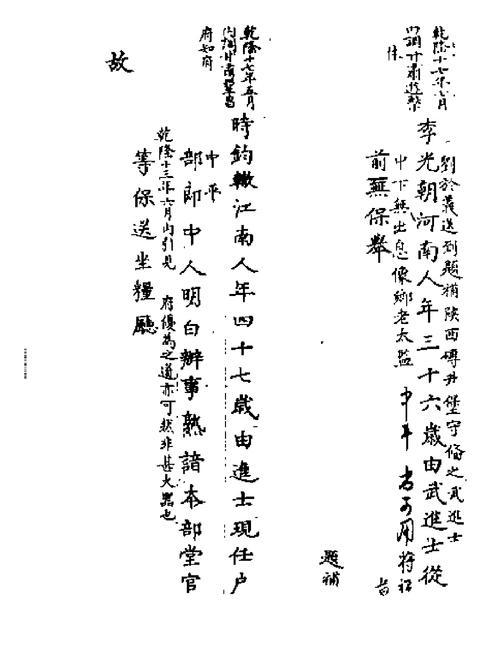 乾隆十七年七月
內調甘肅遊擊
劉於義送到題補陝西磚井堡守備之武進士
李光朝河南人年三十六歲由武進士從
中下無出息像鄉老太監
中平 尚可用將記
前無保舉
題補
乾隆十七年五月
內調甘肅鞏昌
府知府
時鈞轍江南人年四十七歲由進士現任户
中平
部郎中人明白辦事熟諳本部堂官
乾隆十三年六月內引見 府優為之道亦可然非甚大器也
等保送坐糧廳
故